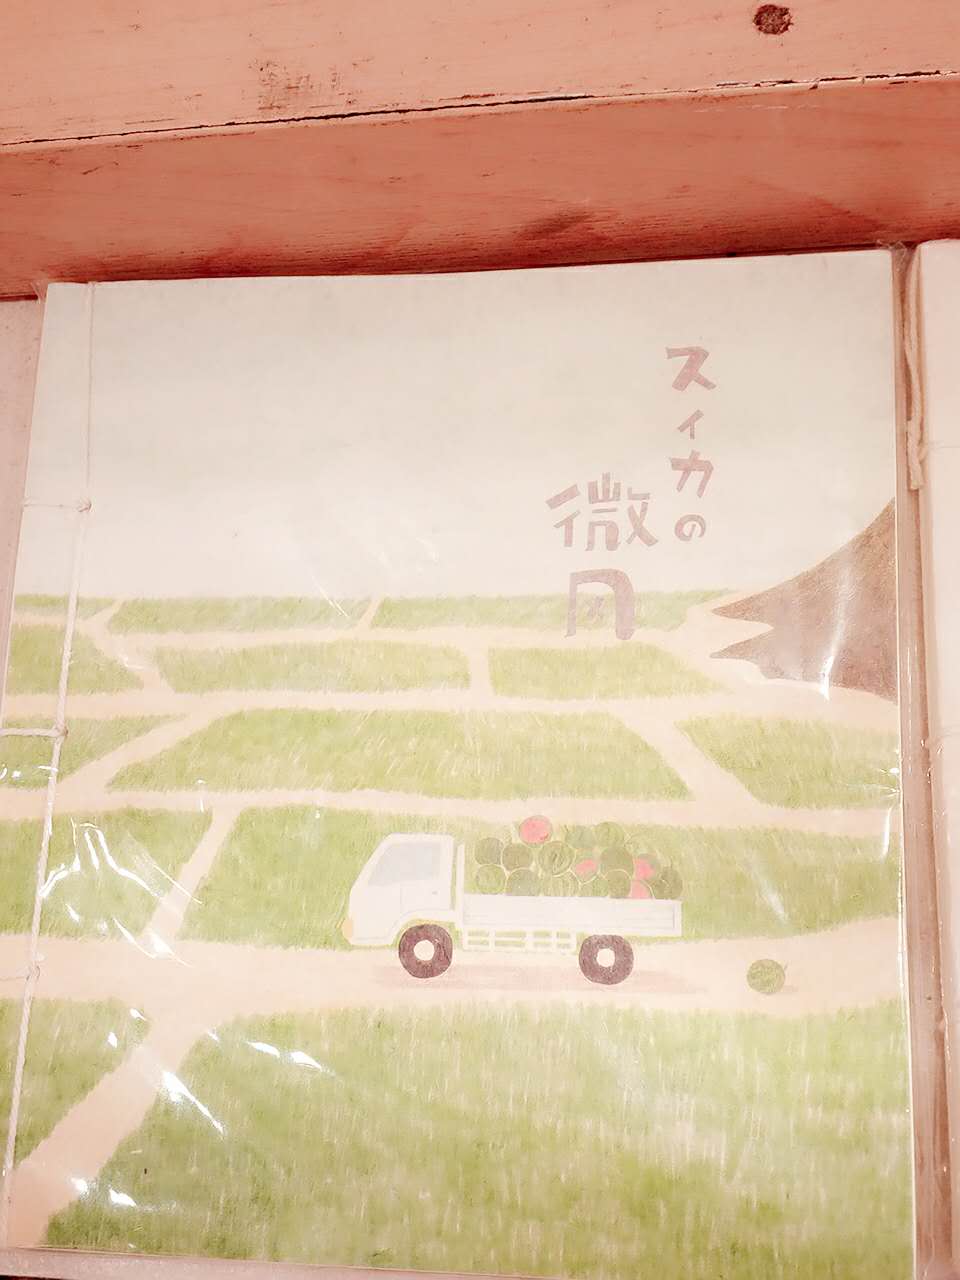 スイカの
微風